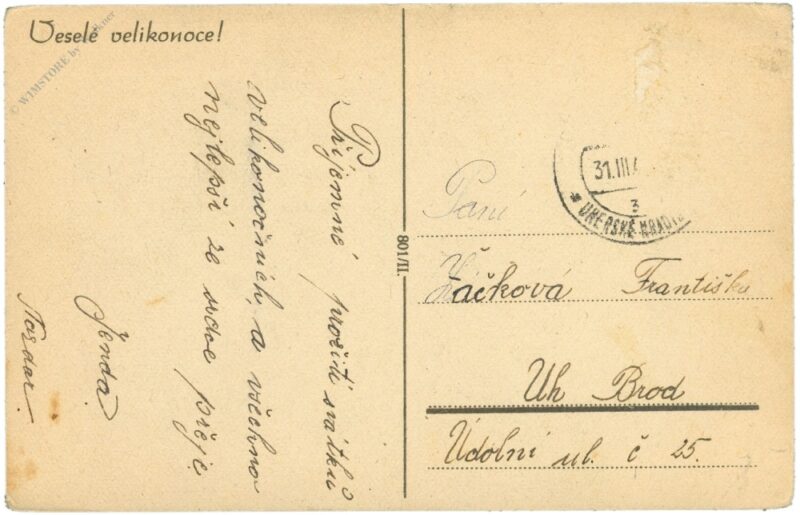 Veselé velikonoce!
© W1MSTORE by
Příjemné prožití svátků
velikonočních, a všechno
nejlepší ze srdce přeje
Jenda.
Nazdar.
801/II.
31.III.
3
* UHERSKÉ HRADI
Paní
Žáčková Františka
Uh Brod
Údolní ul. č 25.